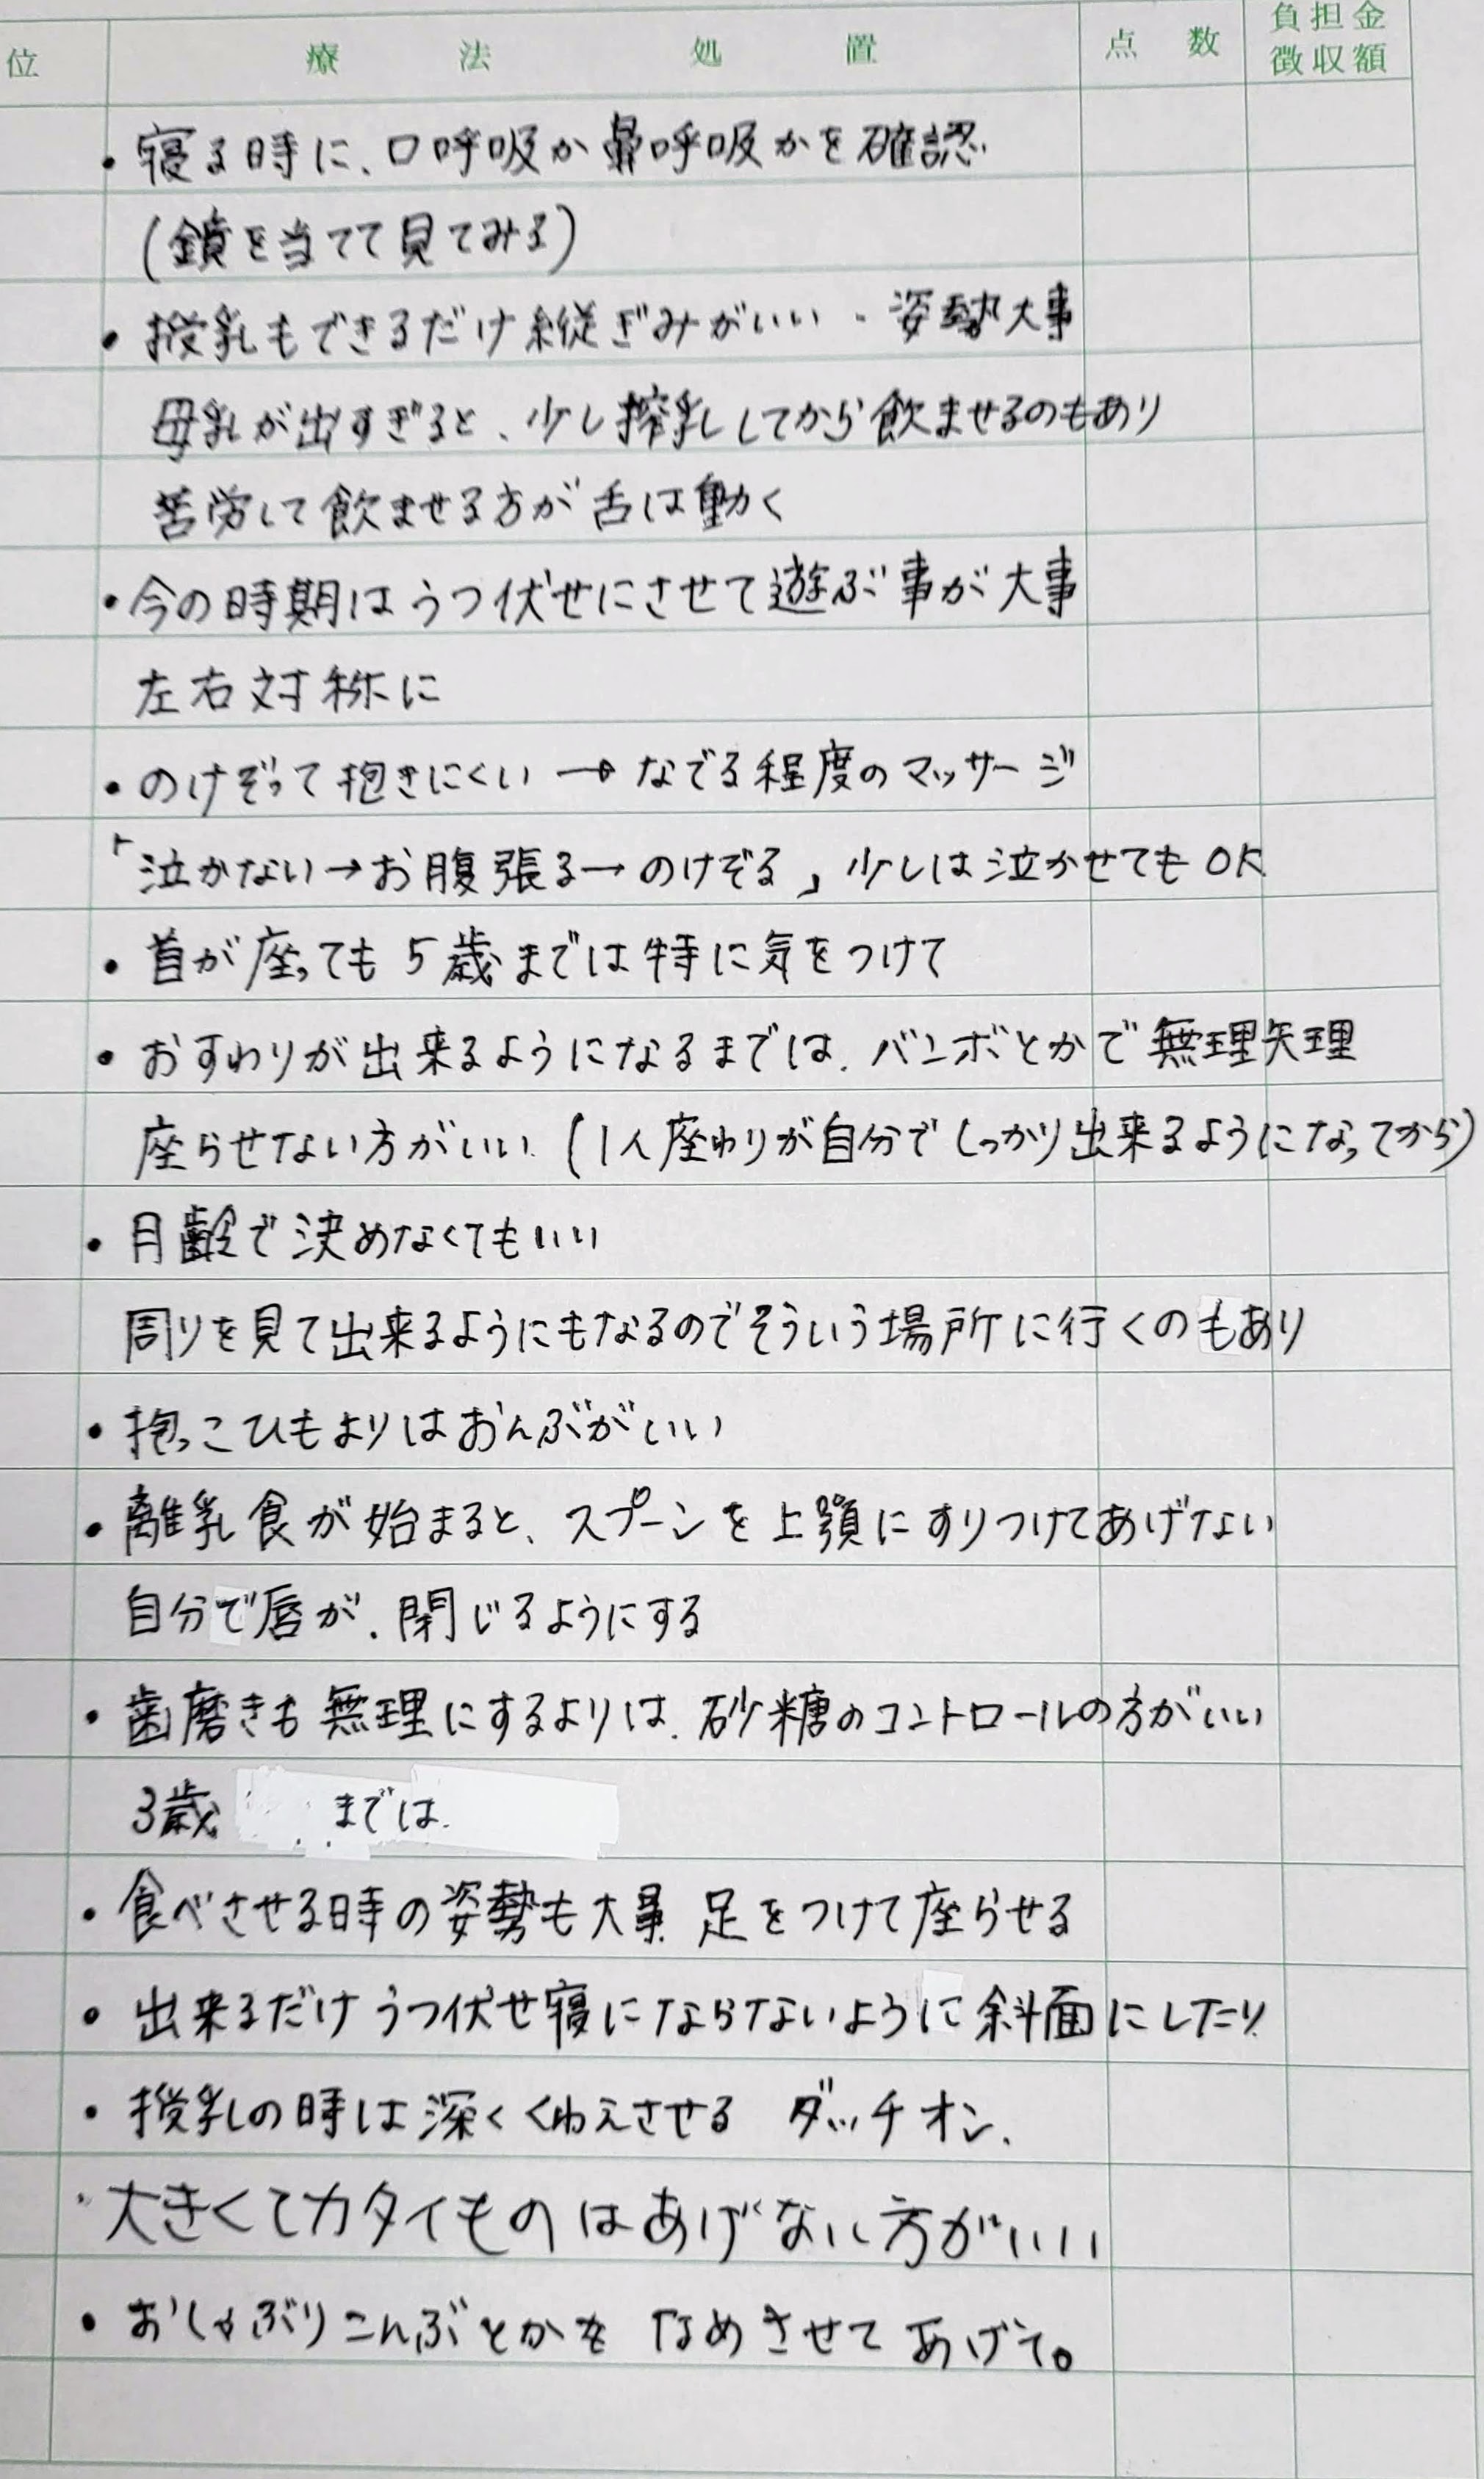 位 療法処置 点数 負担金徴収額
・寝る時に、口呼吸か鼻呼吸かを確認
(鏡を当てて見てみる)
・授乳もできるだけ縦ぎみがいい・姿勢大事
母乳が出すぎると、少し搾乳してから飲ませるのもあり
苦労して飲ませる方が舌は動く
・今の時期はうつ伏せにさせて遊ぶ事が大事
左右対称に
・のけぞって抱きにくい→なでる程度のマッサージ
「泣かない→お腹張る→のけぞる」少しは泣かせてもOK
・首が座っても5歳までは特に気をつけて
・おすわりが出来るようになるまでは、バンボとかで無理矢理
座らせない方がいい(1人座わりが自分でしっかり出来るようになってから)
・月齢で決めなくてもいい
周りを見て出来るようにもなるのでそういう場所に行くのもあり
・抱っこひもよりはおんぶがいい
・離乳食が始まると、スプーンを上顎にすりつけてあげない
自分で唇が、閉じるようにする
・歯磨きも無理にするよりは、砂糖のコントロールの方がいい
3歳 までは
・食べさせる時の姿勢も大事 足をつけて座らせる
・出来るだけうつ伏せ寝にならないように斜面にしたり
・授乳の時は深くくわえさせる ダッチオン、
・大きくてカタイものはあげない方がいい
・おしゃぶりこんぶとかをなめさせてあげて。